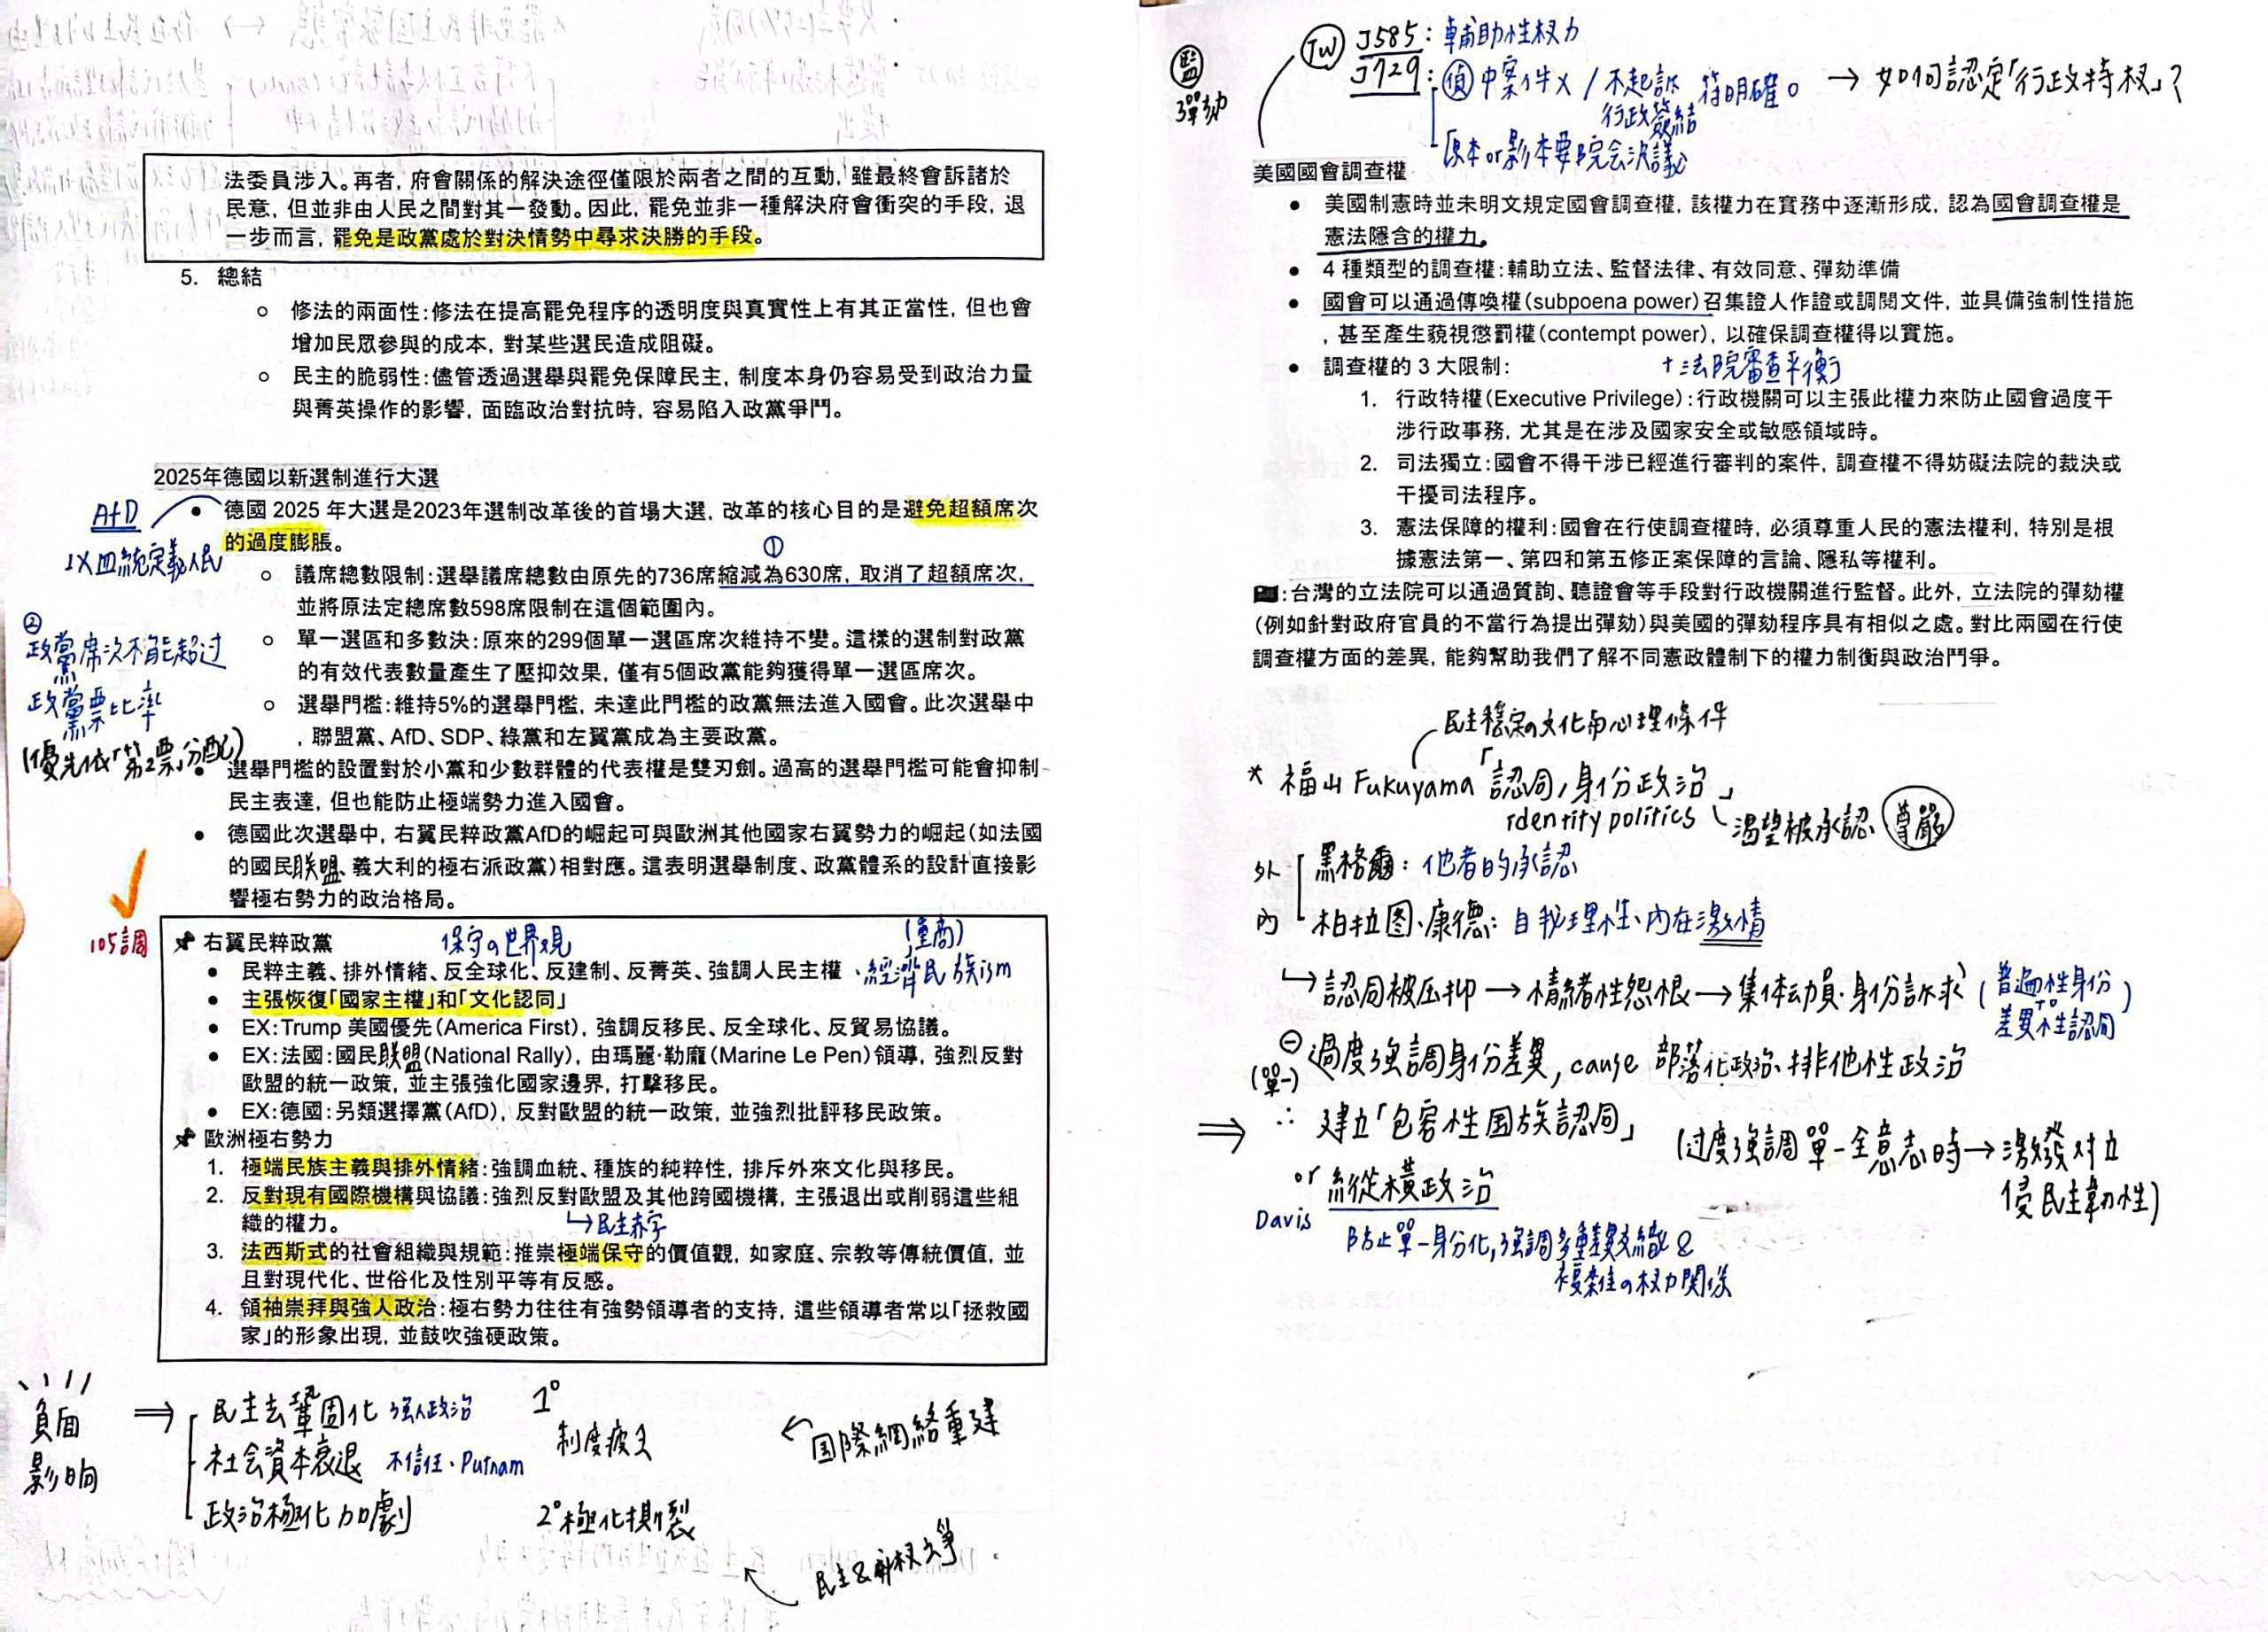 法委員涉入。再者，府會關係的解決途徑僅限於兩者之間的互動，雖最終會訴諸於
民意，但並非由人民之間對其一發動。因此，罷免並非一種解決府會衝突的手段，退
一步而言，罷免是政黨處於對決情勢中尋求決勝的手段。
5. 總結
○ 修法的兩面性：修法在提高罷免程序的透明度與真實性上有其正當性，但也會
增加民眾參與的成本，對某些選民造成阻礙。
○ 民主的脆弱性：儘管透過選舉與罷免保障民主，制度本身仍容易受到政治力量
與菁英操作的影響，面臨政治對抗時，容易陷入政黨爭鬥。
2025年德國以新選制進行大選
AfD
以血統定義人民
● 德國 2025 年大選是2023年選制改革後的首場大選，改革的核心目的是避免超額席次
的過度膨脹。
①
○ 議席總數限制：選舉議席總數由原先的736席縮減為630席，取消了超額席次，
並將原法定總席數598席限制在這個範圍內。
②
政黨席次不能超过
政黨票比率
(優先依「第2票」分配)
○ 單一選區和多數決：原來的299個單一選區席次維持不變。這樣的選制對政黨
的有效代表數量產生了壓抑效果，僅有5個政黨能夠獲得單一選區席次。
○ 選舉門檻：維持5%的選舉門檻，未達此門檻的政黨無法進入國會。此次選舉中
，聯盟黨、AfD、SDP、綠黨和左翼黨成為主要政黨。
● 選舉門檻的設置對於小黨和少數群體的代表權是雙刃劍。過高的選舉門檻可能會抑制
民主表達，但也能防止極端勢力進入國會。
● 德國此次選舉中，右翼民粹政黨AfD的崛起可與歐洲其他國家右翼勢力的崛起（如法國
的國民联盟、義大利的極右派政黨）相對應。這表明選舉制度、政黨體系的設計直接影
響極右勢力的政治格局。
105調
📌 右翼民粹政黨
保守の世界观
(重商)
● 民粹主義、排外情緒、反全球化、反建制、反菁英、強調人民主權、經濟民族ism
● 主張恢復「國家主權」和「文化認同」
● EX：Trump 美國優先（America First），強調反移民、反全球化、反貿易協議。
● EX：法國：國民联盟（National Rally），由瑪麗·勒龐（Marine Le Pen）領導，強烈反對
歐盟的統一政策，並主張強化國家邊界，打擊移民。
● EX：德國：另類選擇黨（AfD），反對歐盟的統一政策，並強烈批評移民政策。
📌 歐洲極右勢力
1. 極端民族主義與排外情緒：強調血統、種族的純粹性，排斥外來文化與移民。
2. 反對現有國際機構與協議：強烈反對歐盟及其他跨國機構，主張退出或削弱這些組
織的權力。
↳民主赤字
3. 法西斯式的社會組織與規範：推崇極端保守的價值觀，如家庭、宗教等傳統價值，並
且對現代化、世俗化及性別平等有反感。
4. 領袖崇拜與強人政治：極右勢力往往有強勢領導者的支持，這些領導者常以「拯救國
家」的形象出現，並鼓吹強硬政策。
負面
影响
⇒ 民主去鞏固化 强人政治
社会資本衰退 不信任、Putnam
政治極化加劇
1° 制度疲乏
2° 極化撕裂
← 国際網絡重建
民主&新权斗爭
監
彈劾
TW J585：輔助性权力
J729：偵中案件X / 不起訴 符明確。 → 如何認定「行政特权」？
行政簽結
原本or影本要院会決議
美國國會調查權
● 美國制憲時並未明文規定國會調查權，該權力在實務中逐漸形成，認為國會調查權是
憲法隱含的權力。
● 4 種類型的調查權：輔助立法、監督法律、有效同意、彈劾準備
● 國會可以通過傳喚權（subpoena power）召集證人作證或調閱文件，並具備強制性措施
，甚至產生藐視懲罰權（contempt power），以確保調查權得以實施。
● 調查權的 3 大限制：
+法院審查平衡
1. 行政特權（Executive Privilege）：行政機關可以主張此權力來防止國會過度干
涉行政事務，尤其是在涉及國家安全或敏感領域時。
2. 司法獨立：國會不得干涉已經進行審判的案件，調查權不得妨礙法院的裁決或
干擾司法程序。
3. 憲法保障的權利：國會在行使調查權時，必須尊重人民的憲法權利，特別是根
據憲法第一、第四和第五修正案保障的言論、隱私等權利。
：台灣的立法院可以通過質詢、聽證會等手段對行政機關進行監督。此外，立法院的彈劾權
（例如針對政府官員的不當行為提出彈劾）與美國的彈劾程序具有相似之處。對比兩國在行使
調查權方面的差異，能夠幫助我們了解不同憲政體制下的權力制衡與政治鬥爭。
民主穩定の文化与心理條件
* 福山 Fukuyama「認同/身份政治」
Identity politics 渴望被承認 尊嚴
外 黑格爾：他者的承認
內 柏拉图、康德：自我理性、內在激情
↳ 認同被压抑 → 情緒性怨恨 → 集体动員、身份訴求 (普遍性身份
差異性認同)
⊖ 過度强調身份差異, cause 部落化政治、排他性政治
(單一)
⇒ ∴ 建立「包容性国族認同」
(过度强調單一全意志時→激發对立
侵民主韌性)
or 縱橫政治
Davis
防止單一身份化,强調多重差異交織&
複雜の权力関係